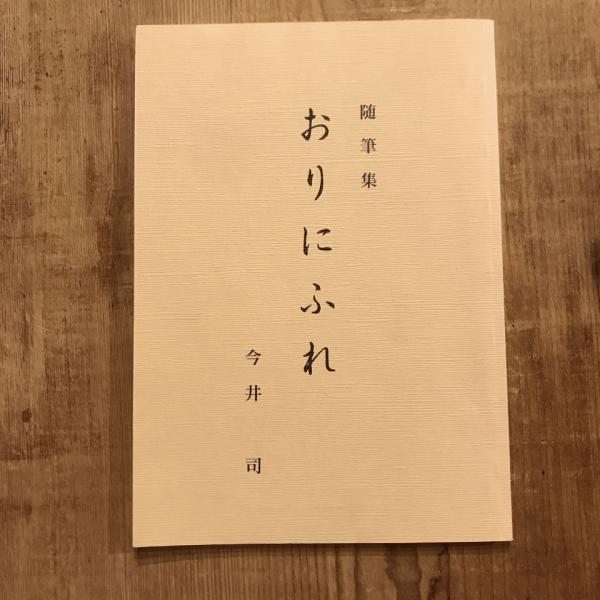 随筆集
おりにふれ
今井 司